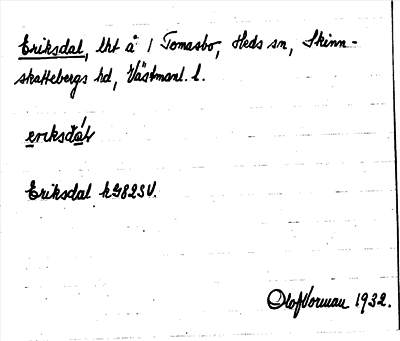 Eriksdal, lht å 1 Tomasbo, Heds sn, Skinn-
skattebergs hd, Västmanl. l.
eriksdal
Eriksdal hG82SV.
Olof Vorman 1932.